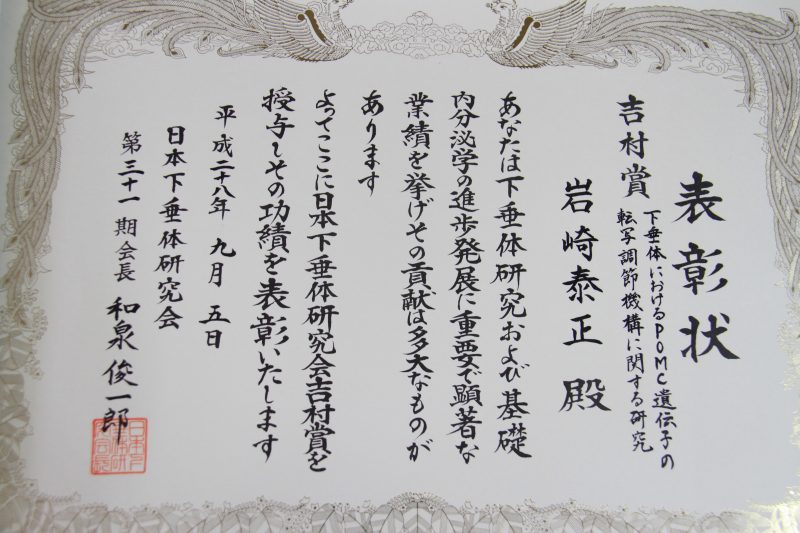 表彰状
吉村賞
下垂体におけるPOMC遺伝子の
転写調節機構に関する研究
岩崎泰正 殿
あなたは下垂体研究および基礎
内分泌学の進歩発展に重要で顕著な
業績を挙げその貢献は多大なものが
あります
よってここに日本下垂体研究会吉村賞を
授与しその功績を表彰いたします
平成二十八年 九月 五日
日本下垂体研究会
第三十一期会長 和泉俊一郎